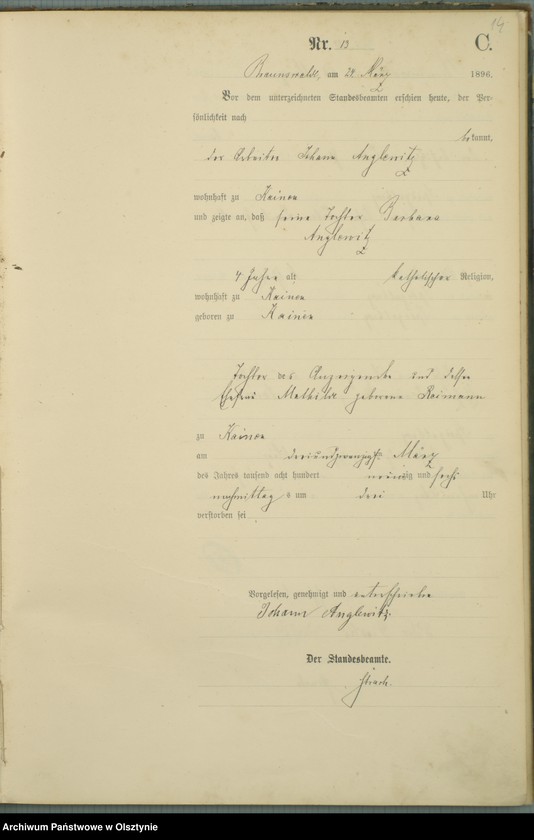 14
Nr. 13 C.
Braunswalde, am 24 März 1896.
Vor dem unterzeichneten Standesbeamten erschien heute, der Per-
sönlichkeit nach
bekannt,
der Arbeiter Johann Anglewitz
wohnhaft zu Kainen
und zeigte an, daß seine Tochter Barbara
Anglewitz
4 Jahre alt katholischer Religion,
wohnhaft zu Kainen
geboren zu Kainen
Tochter des Anzeigenden und dessen
Ehefrau Mathilda geborene Reimann
zu Kainen
am dreiundzwanzigsten März
des Jahres tausend acht hundert neunzig und sechs
nachmittags um drei Uhr
verstorben sei
Vorgelesen, genehmigt und unterschrieben
Johann Anglewitz.
Der Standesbeamte.
Archiwum Państwowe w Olsztynie